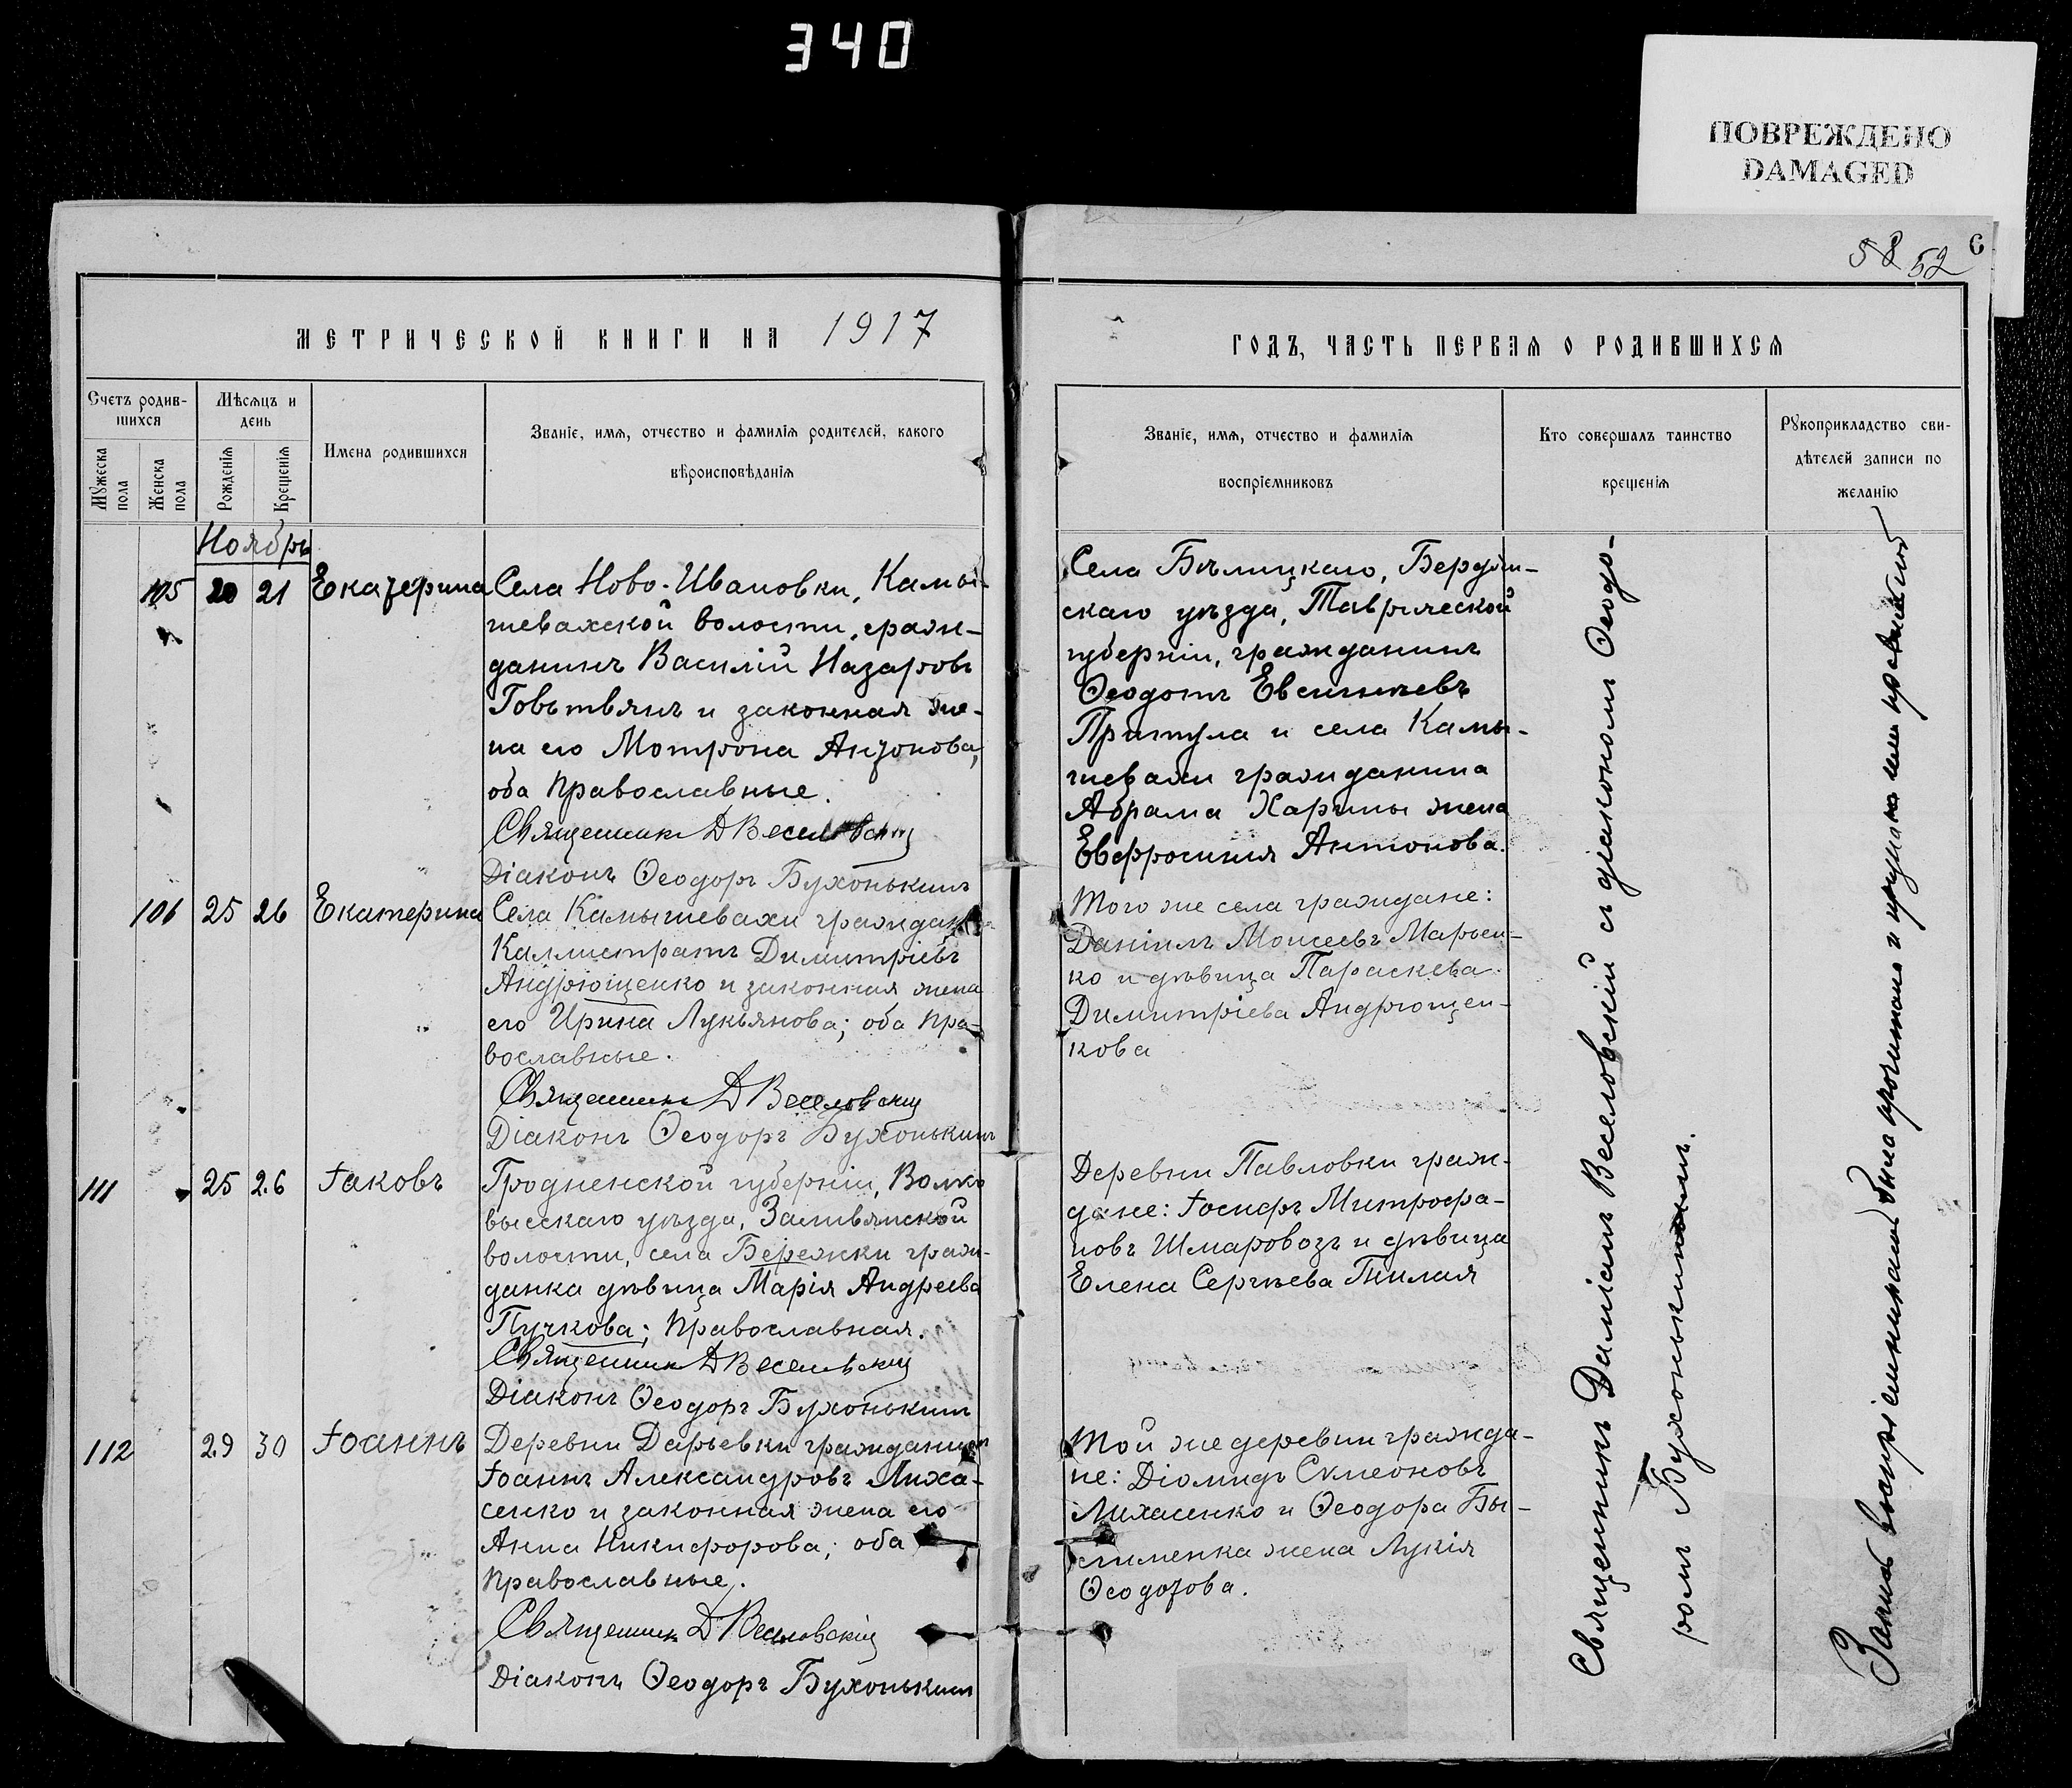 340
ПОВРЕЖДЕНО
DAMAGED
58 52 6
МЕТРИЧЕСКОЙ КНИГИ НА 1917
ГОДЪ, ЧАСТЬ ПЕРВАЯ О РОДИВШИХСЯ
Счетъ родив-
шихся
Мѣсяцъ и
день
Мужеска пола
Женска пола
Рожденія
Крещенія
Имена родившихся
Званіе, имя, отчество и фамилія родителей, какого
вѣроисповѣданія
Званіе, имя, отчество и фамилія
воспріемниковъ
Кто совершалъ таинство
крещенія
Рукоприкладство сви-
дѣтелей записи по
желанію
Ноябрь
105 20 21 Екатерина
Села Ново-Ивановки, Камы-
шевахской волости, граж-
данинъ Василій Назаровъ
Говътвянъ и законная же-
на его Мотрона Антонова,
оба православные.
Священникъ Д Веселовскій
Діаконъ Ѳеодоръ Бухонькинъ
Села Бѣлицкаго, Бердян-
скаго уѣзда, Таврической
губерніи, гражданинъ
Ѳеодотъ Евсигнѣевъ
Притула и села Камы-
шевахи гражданина
Абрама Харины жена
Евфросинія Антонова.
106 25 26 Екатерина
Села Камышевахи гражданинъ
Каллистратъ Димитріевъ
Андрющенко и законная жена
его Ирина Лукьянова; оба пра-
вославные.
Священникъ Д Веселовскій
Діаконъ Ѳеодоръ Бухонькинъ
Того же села граждане:
Даніилъ Моисеевъ Марьен-
ко и дѣвица Параскева
Димитріева Андрющен-
кова
111 25 26 Іаковъ
Гродненской губерніи, Волко
высскаго уѣзда, Зельвянской
волости, села Бережки граж-
данка дѣвица Марія Андреева
Пучкова; православная.
Священникъ Д Веселовскій
Діаконъ Ѳеодоръ Бухонькинъ
Деревни Павловки граж-
дане: Іосифъ Митрофа-
новъ Шмаровозъ и дѣвица
Елена Сергѣева Гнилая
112 29 30 Іоаннъ
Деревни Дарьевки гражданинъ
Іоаннъ Александровъ Лиха-
сенко и законная жена его
Анна Никифорова; оба
православные.
Священникъ Д Веселовскій
Діаконъ Ѳеодоръ Бухонькинъ
Той же деревни гражда-
не: Діомидъ Сѵмеоновъ
Лихасенко и Ѳеодора Бы-
лименка жена Лукія
Ѳеодотова.
Священникъ Даміанъ Веселовскій съ діакономъ Ѳеодо-
ромъ Бухонькинымъ.
Запись воспріемниками была прочитана и признана ими правильной